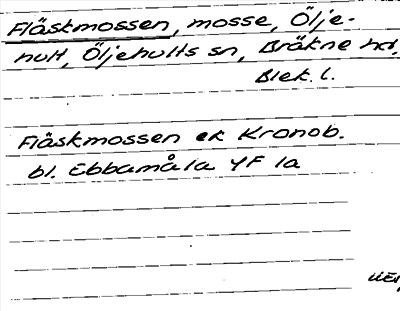 Fläskmossen, mosse, Ölje-
hult, Öljehults sn, Bräkne hd,
Blek. l.
Fläskmossen ek Kronob.
bl. Ebbamåla 4F 1a